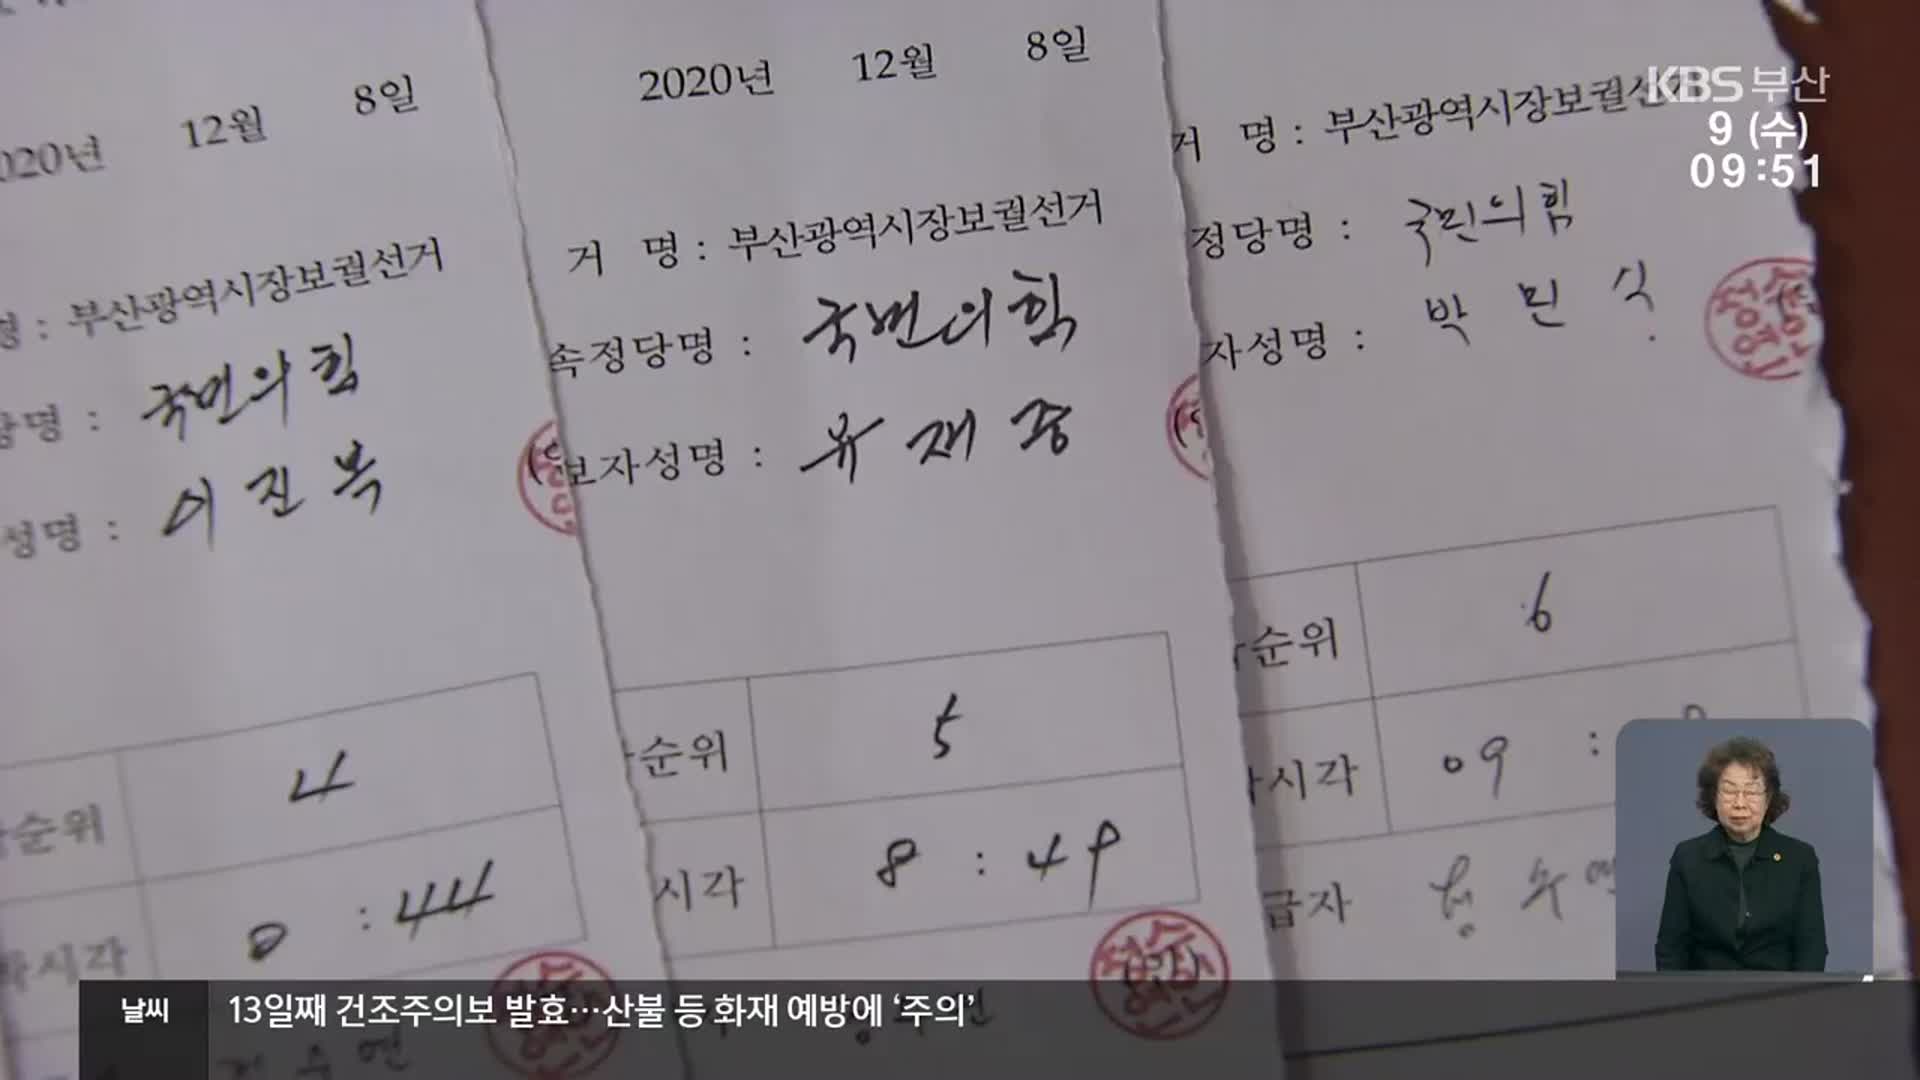 2020년 12월 8일
부산광역시장보궐선거
국민의힘
이진복
성명 :
순위 4
시각 : 44
2020년 12월 8일
거 명 : 부산광역시장보궐선거
속정당명 : 국민의힘
보자성명 : 유재중
순위 5
시각 8 : 49
거 명 : 부산광역시장보궐선거
정당명 : 국민의힘
자성명 : 박민식
순위 6
시각 09 :
급자 정수연
KBS 부산
9 (수)
09:51
날씨 13일째 건조주의보 발효…산불 등 화재 예방에 ‘주의’